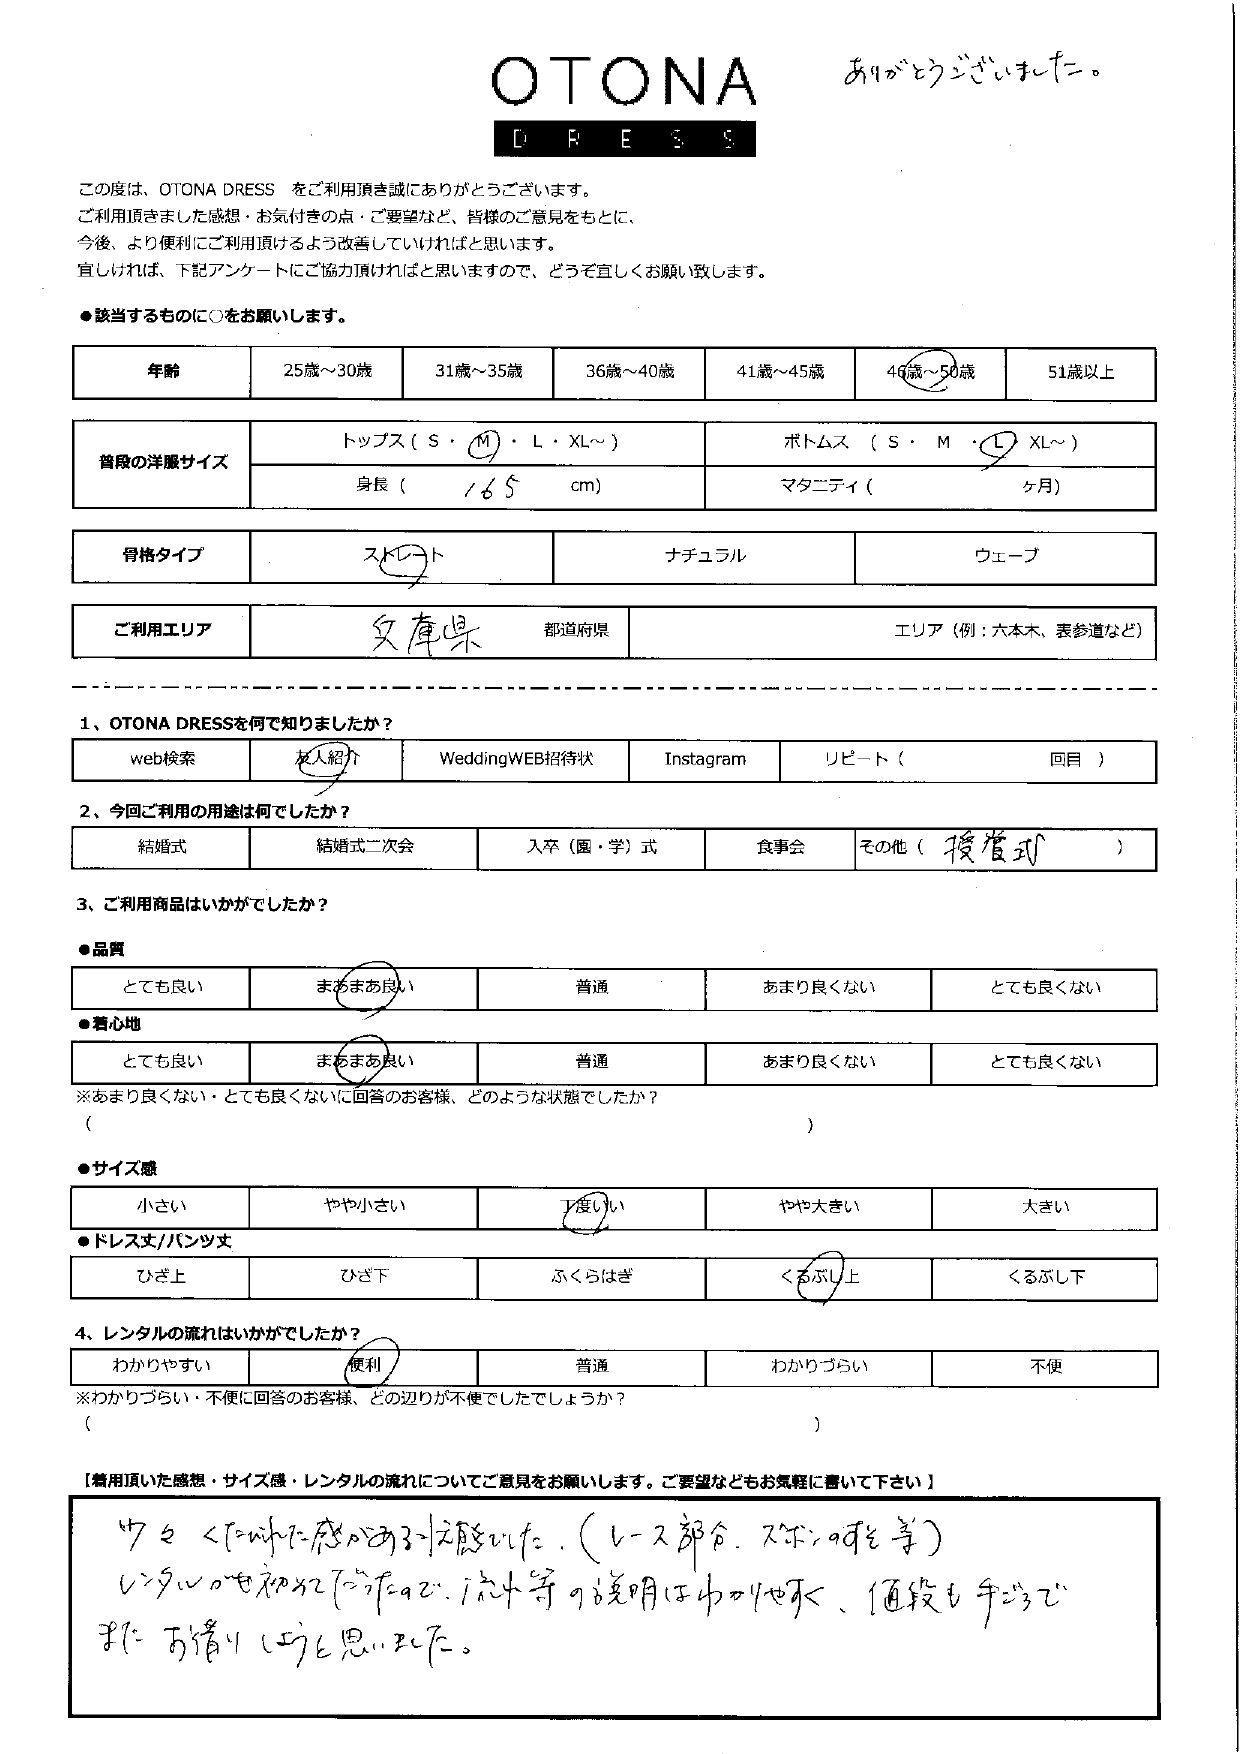 OTONA
DRESS
ありがとうございました。
この度は、OTONA DRESS をご利用頂き誠にありがとうございます。
ご利用頂きました感想・お気付きの点・ご要望など、皆様のご意見をもとに、
今後、より便利にご利用頂けるよう改善していければと思います。
宜しければ、下記アンケートにご協力頂ければと思いますので、どうぞ宜しくお願い致します。
●該当するものに○をお願いします。
年齢 25歳～30歳 31歳～35歳 36歳～40歳 41歳～45歳 46歳～50歳 51歳以上
普段の洋服サイズ トップス ( S ・ M ・ L ・ XL～ ) ボトムス ( S ・ M ・ L XL～ )
身長 ( 165 cm) マタニティ ( ケ月)
骨格タイプ ストレート ナチュラル ウェーブ
ご利用エリア 兵庫県 都道府県 エリア（例：六本木、表参道など）
1、OTONA DRESSを何で知りましたか？
web検索 友人紹介 WeddingWEB招待状 Instagram リピート ( 回目 )
2、今回ご利用の用途は何でしたか？
結婚式 結婚式二次会 入卒（園・学）式 食事会 その他 ( 授賞式 )
3、ご利用商品はいかがでしたか？
●品質
とても良い まあまあ良い 普通 あまり良くない とても良くない
●着心地
とても良い まあまあ良い 普通 あまり良くない とても良くない
※あまり良くない・とても良くないに回答のお客様、どのような状態でしたか？
( )
●サイズ感
小さい やや小さい 丁度いい やや大きい 大きい
●ドレス丈/パンツ丈
ひざ上 ひざ下 ふくらはぎ くるぶし上 くるぶし下
4、レンタルの流れはいかがでしたか？
わかりやすい 便利 普通 わかりづらい 不便
※わかりづらい・不便に回答のお客様、どの辺りが不便でしたでしょうか？
( )
【着用頂いた感想・サイズ感・レンタルの流れについてご意見をお願いします。ご要望などもお気軽に書いて下さい 】
少々 くたびれた感がある状態でした．（レース部分．ズボンのすそ等）
レンタルが初めてだったので、流れ等の説明はわかりやすく、値段も手ごろで
また お借りしようと思いました。